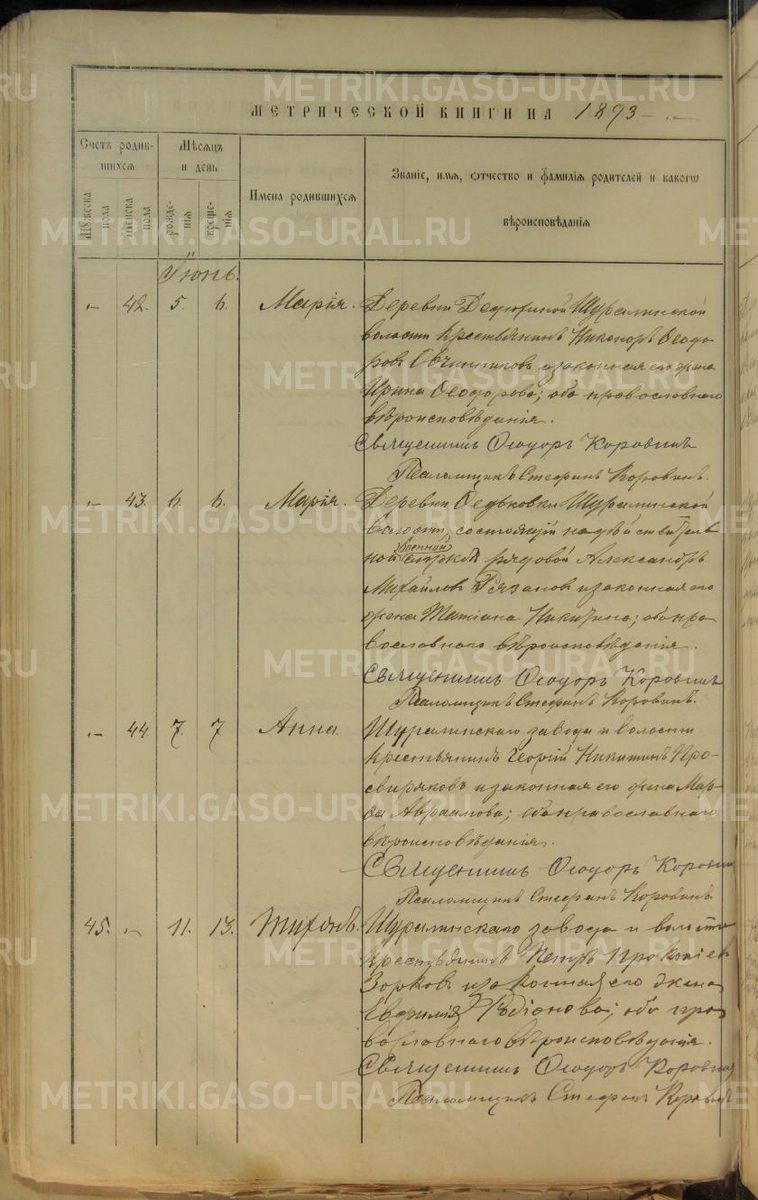 МЕТРИЧЕСКОЙ КНИГИ НА 1893
Счетъ родив-
шихся
Мѣсяцъ
и день
Имена родившихся
Званіе, имя, отчество и фамилія родителей и какогѡ
вѣроисповѣданія
Мужеска
пола
Женска
пола
рожде-
нія
креще-
нія
Іюнь.
42. 5. 6. Марія. Деревни Федюшиной Шуралинской
волости крестьянинъ Никаноръ Ѳеодо-
ровъ Овчинниковъ и законная его жена
Ирина Ѳеодорова; оба православнаго
вѣроисповѣданія.
Священникъ Ѳеодоръ Коровинъ
Псаломщикъ Стефанъ Коровинъ.
43. 6. 6. Марія. Деревни Федьковки Шуралинской
волости, состоящій на дѣйствитель-
ной военной службѣ рядовой Александръ
Михайловъ Рязановъ и законная его
жена Татіана Никитина; оба пра-
вославнаго вѣроисповѣданія.
Священникъ Ѳеодоръ Коровинъ
Псаломщикъ Стефанъ Коровинъ.
44. 7. 7. Анна Шуралинскаго завода и волости
крестьянинъ Георгій Никитинъ Про-
свиряковъ и законная его жена Мар-
ѳа Авраамова; оба православнаго
вѣроисповѣданія.
Священникъ Ѳеодоръ Коровинъ
Псаломщикъ Стефанъ Коровинъ
45. 11. 13. Тихонъ. Шуралинскаго завода и волости
крестьянинъ Петръ Прокопіев
Зорковъ и законная его жена
Евфимія Родіонова; оба пра-
вославнаго вѣроисповѣданія.
Священникъ Ѳеодоръ Коровин
Псаломщикъ Стефанъ Коровин
METRIKI.GASO-URAL.RU